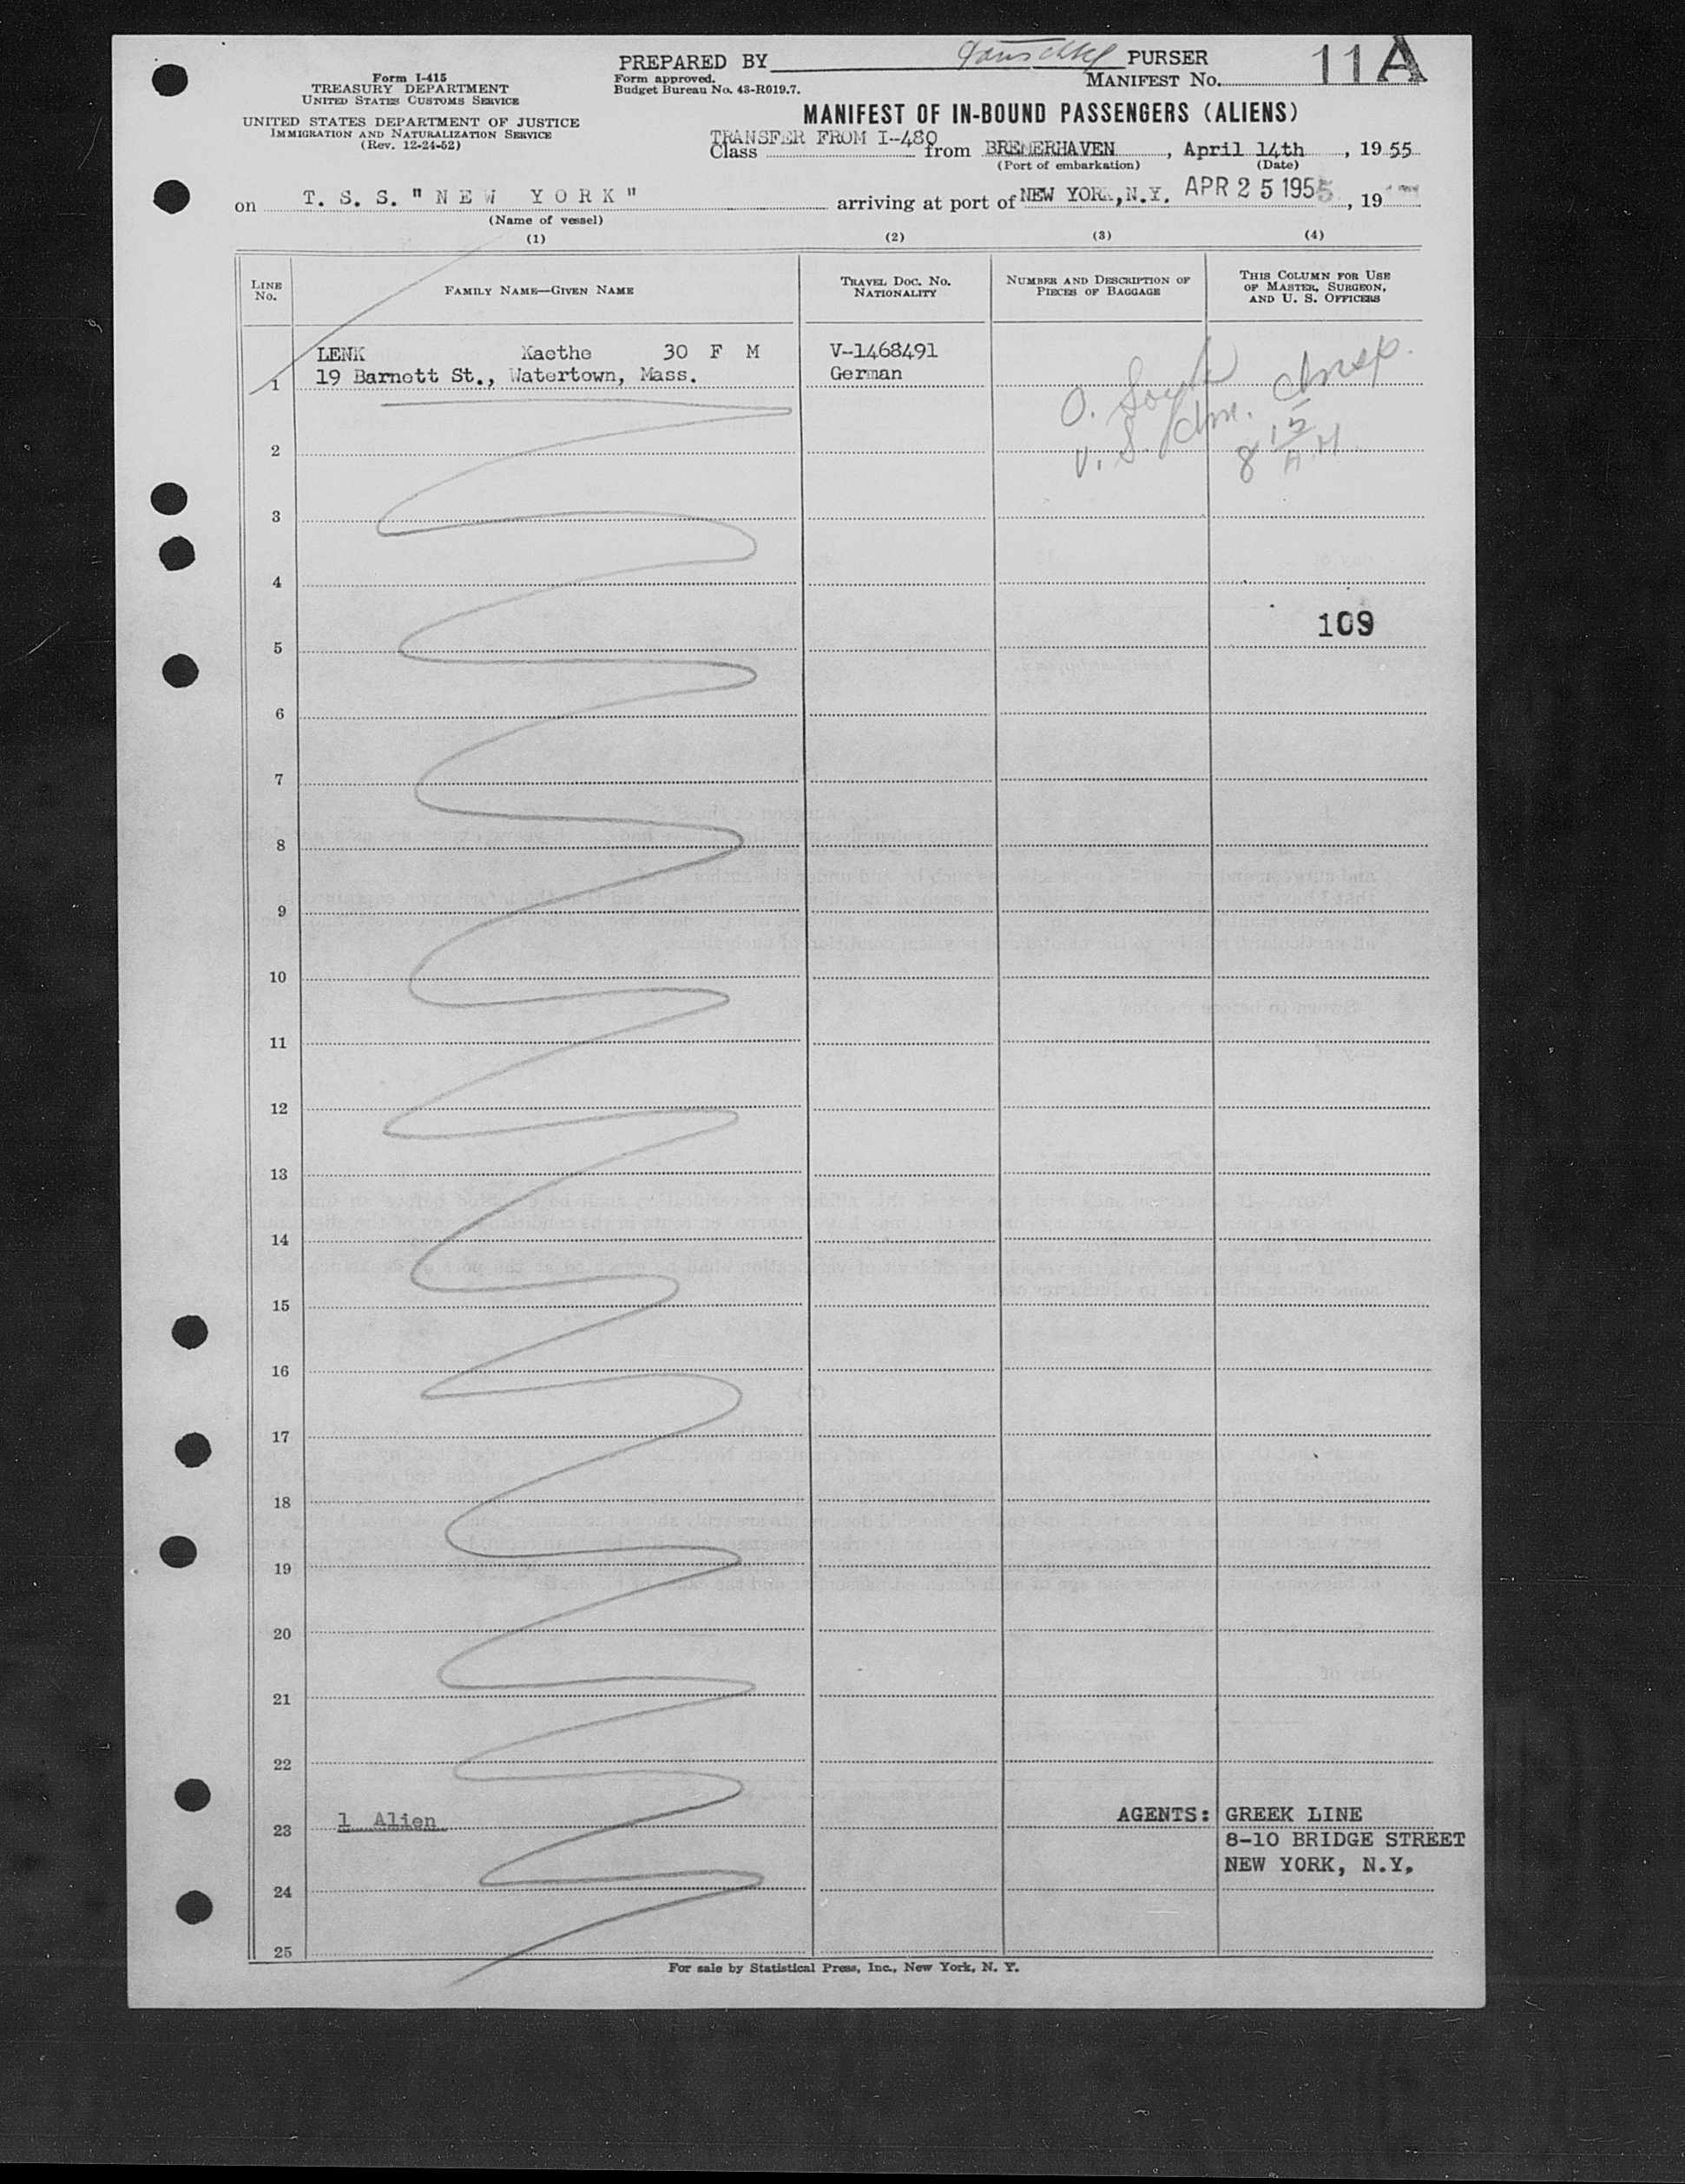 Form I-415
TREASURY DEPARTMENT
UNITED STATES CUSTOMS SERVICE
UNITED STATES DEPARTMENT OF JUSTICE
IMMIGRATION AND NATURALIZATION SERVICE
(Rev. 12-24-52)
PREPARED BY PURSER
Form approved.
Budget Bureau No. 43-R019.7.
MANIFEST No. 11A
MANIFEST OF IN-BOUND PASSENGERS (ALIENS)
TRANSFER FROM I-480
Class from BREMERHAVEN, April 14th, 1955
(Port of embarkation) (Date)
on T. S. S. "NEW YORK" arriving at port of NEW YORK, N.Y. APR 25 1955, 19
(Name of vessel)
(1) (2) (3) (4)
LINE No. FAMILY NAME—GIVEN NAME TRAVEL DOC. NO. NATIONALITY NUMBER AND DESCRIPTION OF PIECES OF BAGGAGE THIS COLUMN FOR USE OF MASTER, SURGEON, AND U. S. OFFICERS
LENK Kaethe 30 F M V-1468491
1 19 Barnett St., Watertown, Mass. German
2
3
4
109
5
6
7
8
9
10
11
12
13
14
15
16
17
18
19
20
21
22
23 1 Alien AGENTS: GREEK LINE
8-10 BRIDGE STREET
NEW YORK, N.Y.
24
25
For sale by Statistical Press, Inc., New York, N. Y.